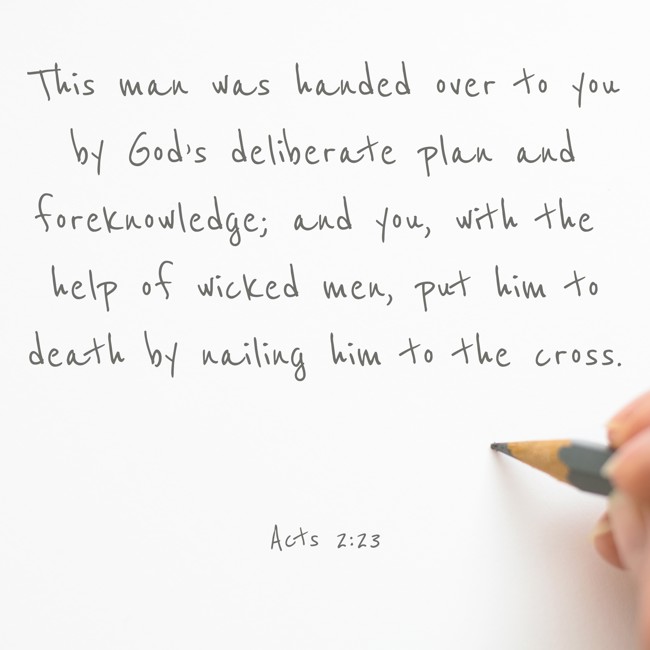 This man was handed over to you
by God's deliberate plan and
foreknowledge; and you, with the
help of wicked men, put him to
death by nailing him to the cross.
Acts 2:23